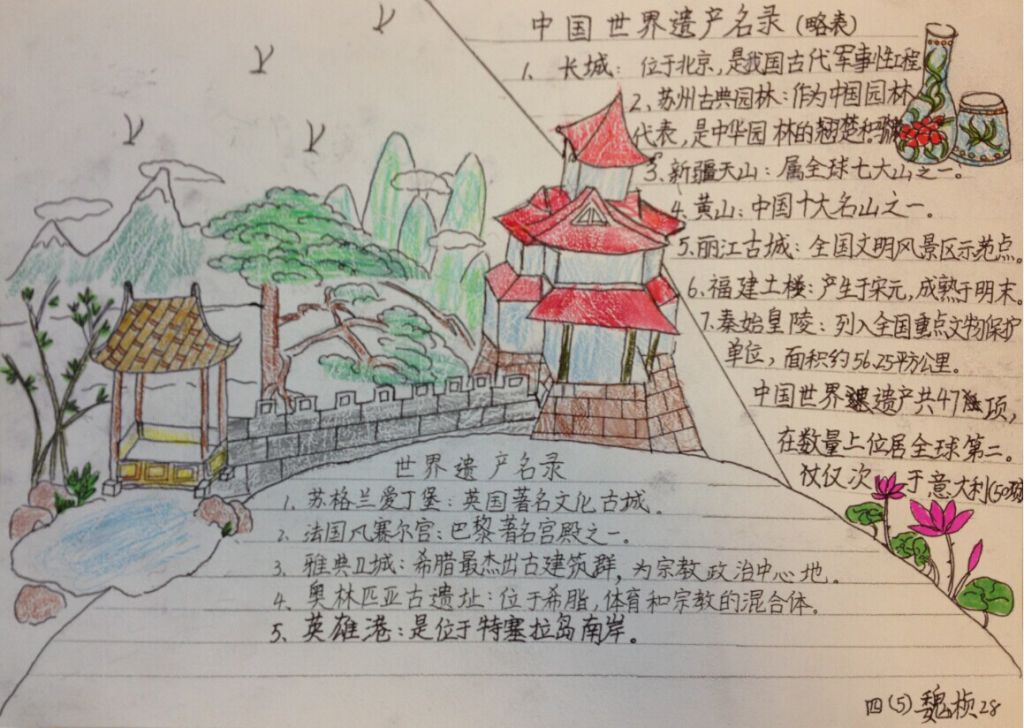 中国世界遗产名录(略表)
1、长城：位于北京，是我国古代军事性工程
2、苏州古典园林：作为中国园林
代表，是中华园林的翘楚和
3、新疆天山：属全球七大山之一。
4、黄山：中国十大名山之一。
5、丽江古城：全国文明风景区示范点。
6、福建土楼：产生于宋元，成熟于明末。
7、秦始皇陵：列入全国重点文物保护
单位，面积约56.25平方公里。
中国世界遗产共47项，
在数量上位居全球第二。
仅仅次于意大利(50项
世界遗产名录
1、苏格兰爱丁堡：英国著名文化古城。
2、法国凡赛尔宫：巴黎著名宫殿之一。
3、雅典卫城：希腊最杰出古建筑群，为宗教政治中心地。
4、奥林匹亚古遗址：位于希脂，体育和宗教的混合体。
5、英雄港：是位于特塞拉岛南岸。
四(5)魏桢28